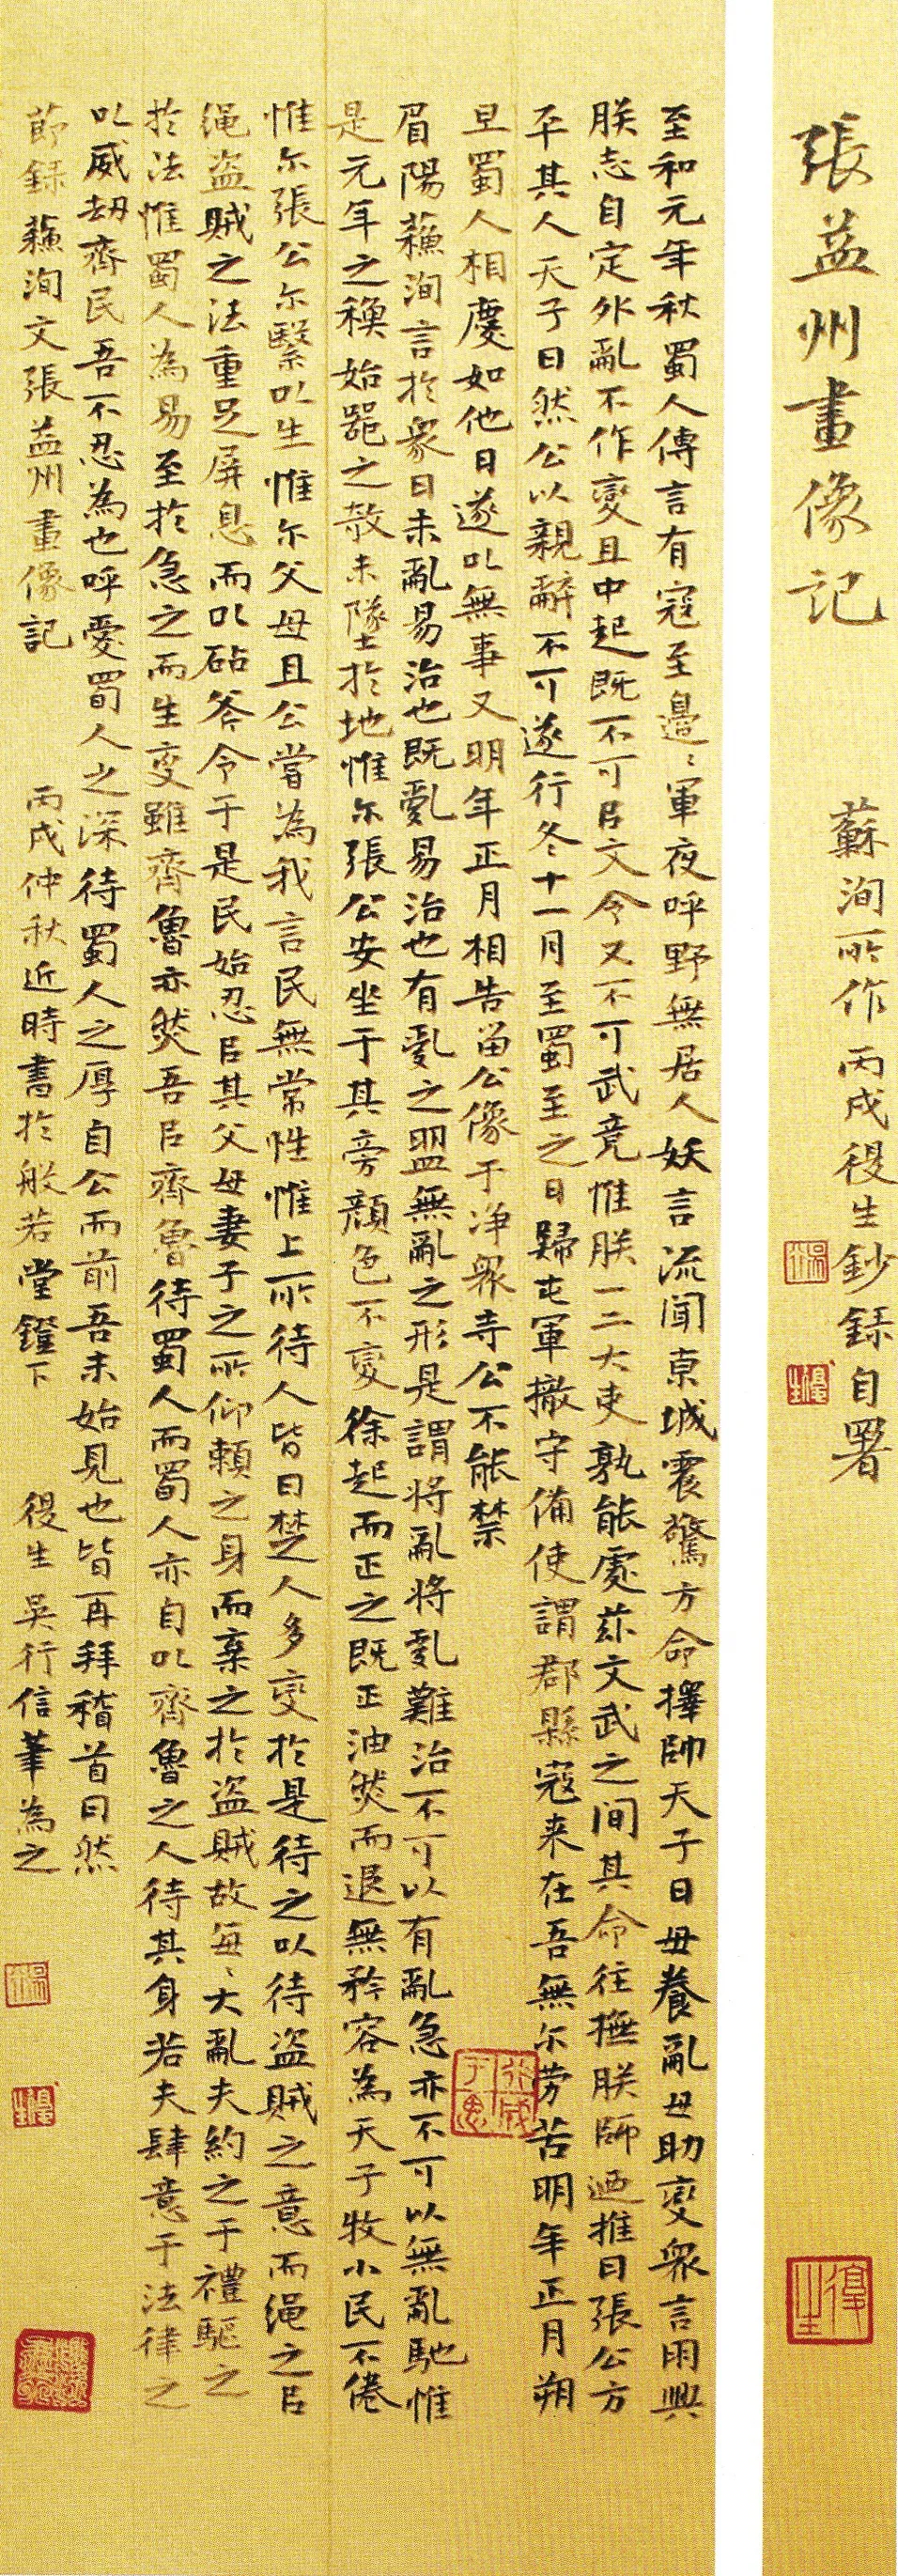 張益州畫像記
蘇洵所作 丙戌役生鈔錄自署
至和元年秋蜀人傳言有寇至邊〻軍夜呼野無居人妖言流聞京城震驚方命擇帥天子曰毋養亂毋助變衆言朋興
朕志自定外亂不作變且中起既不可㠯文令又不可武竞惟朕一二大吏孰能處茲文武之间其命往撫朕師迺推曰張公方
平其人天子曰然公以親辭不可遂行冬十一月至蜀至之日歸屯軍撤守備使謂郡縣寇来在吾無尔劳苦明年正月朔
旦蜀人相慶如他日遂㕥無事又明年正月相告留公像于净衆寺公不能禁
眉陽蘇洵言於衆曰未亂易治也既亂易治也有亂之盟無亂之形是謂将亂将亂難治不可以有亂急亦不可以無亂馳惟
是元年之穐始噐之敧未墜於地惟尔張公安坐于其旁顏色不變徐起而正之既正油然而退無矜容為天子牧小民不倦
惟尔張公尔繄㕥生惟尔父母且公嘗為我言民無常性惟上所待人皆曰楚人多变於是待之以待盗贼之意而绳之㠯
绳盗贼之法重足屏息而㕥砧斧令于是民始忍㠯其父母妻子之所仰賴之身而棄之於盗賊故每〻大亂夫約之于禮驅之
於法惟蜀人為易至於急之而生变雖齊魯亦然吾㠯齊魯待蜀人而蜀人亦自㕥齊魯之人待其身若夫肆意于法律之
㕥威劫齊民吾不忍為也呼爱蜀人之深待蜀人之厚自公而前吾未始見也皆再拜稽首曰然
莭録蘇洵文張益州畫像記 丙戌仲秋近時書於般若堂鐙下 役生吴行信筆為之